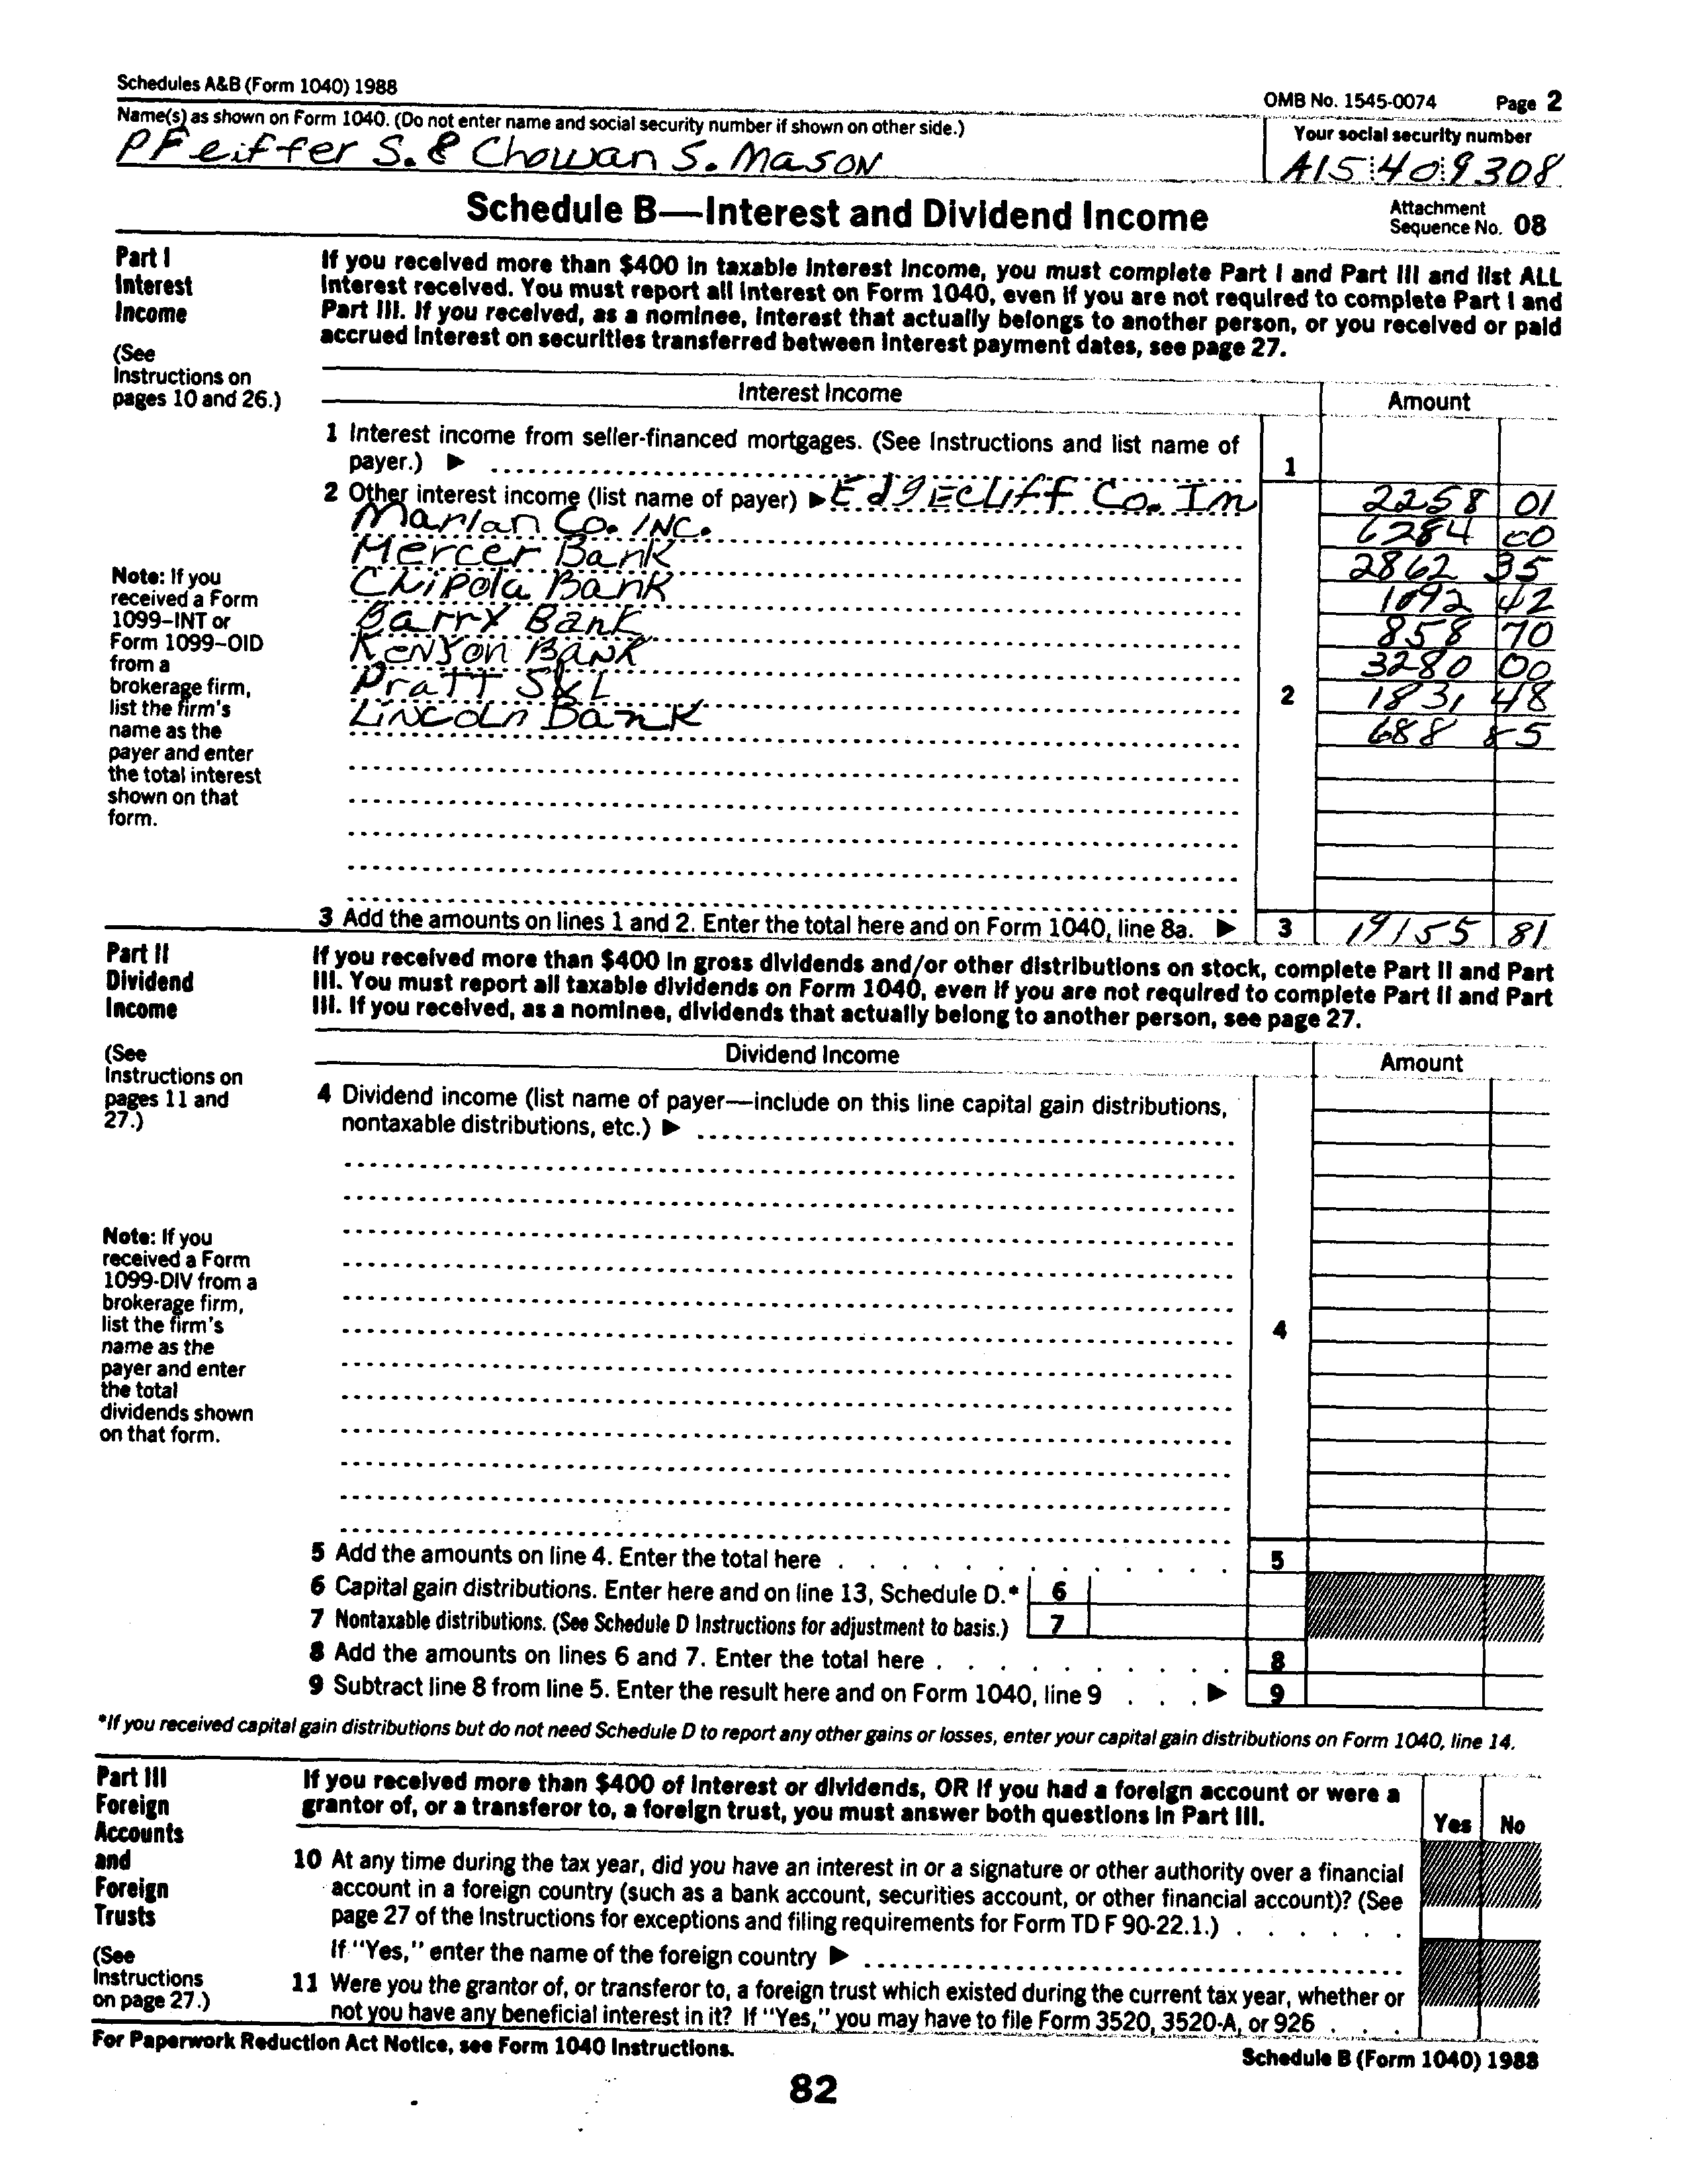 Schedules A&B (Form 1040) 1988
OMB No. 1545-0074 Page 2
Name(s) as shown on Form 1040. (Do not enter name and social security number if shown on other side.)
Your social security number
PFeiffer S. & Chowan S. Mason
A15 40 9308
Schedule B—Interest and Dividend Income
Attachment
Sequence No. 08
Part I
Interest
Income
(See
Instructions on
pages 10 and 26.)
If you received more than $400 in taxable interest income, you must complete Part I and Part III and list ALL
interest received. You must report all interest on Form 1040, even if you are not required to complete Part I and
Part III. If you received, as a nominee, interest that actually belongs to another person, or you received or paid
accrued interest on securities transferred between interest payment dates, see page 27.
Interest Income
Amount
1 Interest income from seller-financed mortgages. (See Instructions and list name of
payer.) ▶
1
2 Other interest income (list name of payer) ▶ EdgEcliff Co. In 2258 01
Marian Co. INC. 6284 00
Mercer Bank 2862 35
Chipola Bank 1092 42
Barry Bank 858 70
Kenyon Bank 3280 00
Pratt S&L 1831 48
Lincoln Bank 688 85
2
Note: If you
received a Form
1099–INT or
Form 1099–OID
from a
brokerage firm,
list the firm's
name as the
payer and enter
the total interest
shown on that
form.
3 Add the amounts on lines 1 and 2. Enter the total here and on Form 1040, line 8a. ▶ 3 19155 81
Part II
Dividend
Income
(See
Instructions on
pages 11 and
27.)
If you received more than $400 in gross dividends and/or other distributions on stock, complete Part II and Part
III. You must report all taxable dividends on Form 1040, even if you are not required to complete Part II and Part
III. If you received, as a nominee, dividends that actually belong to another person, see page 27.
Dividend Income
Amount
4 Dividend income (list name of payer—include on this line capital gain distributions,
nontaxable distributions, etc.) ▶
4
Note: If you
received a Form
1099-DIV from a
brokerage firm,
list the firm's
name as the
payer and enter
the total
dividends shown
on that form.
5 Add the amounts on line 4. Enter the total here . . . . . . . . . . . . 5
6 Capital gain distributions. Enter here and on line 13, Schedule D.* 6
7 Nontaxable distributions. (See Schedule D Instructions for adjustment to basis.) 7
8 Add the amounts on lines 6 and 7. Enter the total here . . . . . . . . . . 8
9 Subtract line 8 from line 5. Enter the result here and on Form 1040, line 9 . . . ▶ 9
*If you received capital gain distributions but do not need Schedule D to report any other gains or losses, enter your capital gain distributions on Form 1040, line 14.
Part III
Foreign
Accounts
and
Foreign
Trusts
(See
Instructions
on page 27.)
If you received more than $400 of interest or dividends, OR if you had a foreign account or were a
grantor of, or a transferor to, a foreign trust, you must answer both questions in Part III.
Yes No
10 At any time during the tax year, did you have an interest in or a signature or other authority over a financial
account in a foreign country (such as a bank account, securities account, or other financial account)? (See
page 27 of the Instructions for exceptions and filing requirements for Form TD F 90-22.1.) . . . . . .
If "Yes," enter the name of the foreign country ▶
11 Were you the grantor of, or transferor to, a foreign trust which existed during the current tax year, whether or
not you have any beneficial interest in it? If "Yes," you may have to file Form 3520, 3520-A, or 926 . . .
For Paperwork Reduction Act Notice, see Form 1040 Instructions.
Schedule B (Form 1040) 1988
82